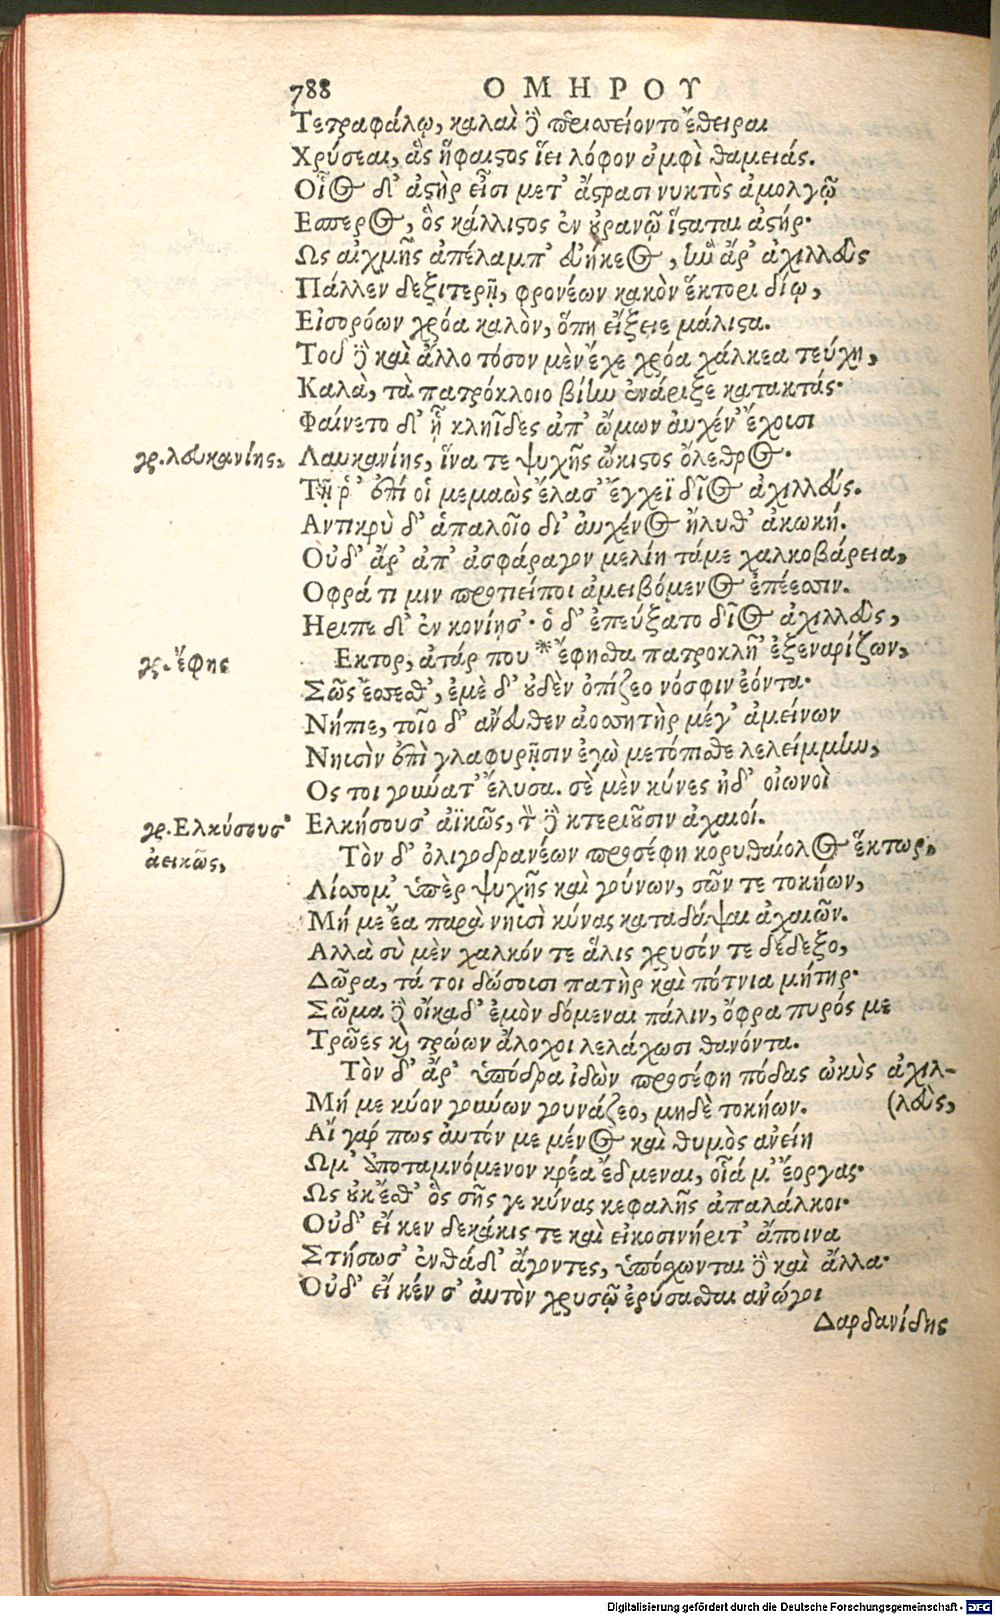 788 ΟΜΗΡΟΥ
Τετραφάλῳ, καλαὶ δὲ περισσείοντο ἔθειραι
Χρύσεαι, ἃς ἥφαιστος ἵει λόφον ἀμφὶ θαμειάς.
Οἷος δ' ἀστὴρ εἶσι μετ' ἄστρασι νυκτὸς ἀμολγῷ
Εσπερος, ὃς κάλλιστος ἐν οὐρανῷ ἵσταται ἀστήρ·
Ως αἰχμῆς ἀπέλαμπ' εὐήκεος, ἣν ἄρ' ἀχιλλεὺς
Πάλλεν δεξιτερῇ, φρονέων κακὸν ἕκτορι δίῳ,
Εἰσορόων χρόα καλὸν, ὅπη εἴξειε μάλιστα.
Τοῦ δὲ καὶ ἄλλο τόσον μὲν ἔχε χρόα χάλκεα τεύχη,
Καλὰ, τὰ πατρόκλοιο βίην ἐνάριξε κατακτάς·
Φαίνετο δ' ᾗ κληῗδες ἀπ' ὤμων αὐχέν' ἔχουσι
γρ. λουκανίης, Λαυκανίης, ἵνα τε ψυχῆς ὤκιστος ὄλεθρος.
Τῇ ῥ' ἐπί οἱ μεμαὼς ἔλασ' ἔγχεϊ δῖος ἀχιλλεύς.
Αντικρὺ δ' ἁπαλοῖο δι' αὐχένος ἤλυθ' ἀκωκή.
Οὐδ' ἄρ' ἀπ' ἀσφάραγον μελίη τάμε χαλκοβάρεια,
Οφρά τι μιν προτιείποι ἀμειβόμενος ἐπέεσσιν.
Ηριπε δ' ἐν κονίῃσ'· ὁ δ' ἐπεύξατο δῖος ἀχιλλεὺς,
γρ. ἔφης Εκτορ, ἀτάρ που *ἔφησθα πατροκλῆ' ἐξεναρίζων,
Σῶς ἔσσεσθ', ἐμὲ δ' οὐδὲν ὀπίζεο νόσφιν ἐόντα·
Νήπιε, τοῖο δ' ἄνευθεν ἀοσσητὴρ μέγ' ἀμείνων
Νηυσὶν ἐπὶ γλαφυρῇσιν ἐγὼ μετόπισθε λελείμμην,
Ος τοι γούνατ' ἔλυσα. σὲ μὲν κύνες ἠδ' οἰωνοὶ
γρ. Ελκύσουσ' Ελκήσουσ' ἀϊκῶς, τὸν δὲ κτεριοῦσιν ἀχαιοί.
ἀεικῶς, Τὸν δ' ὀλιγοδρανέων προσέφη κορυθαίολος ἕκτωρ,
Λίσσομ' ὑπὲρ ψυχῆς καὶ γούνων, σῶν τε τοκήων,
Μή με ἔα παρὰ νηυσὶ κύνας καταδάψαι ἀχαιῶν.
Αλλὰ σὺ μὲν χαλκόν τε ἅλις χρυσόν τε δέδεξο,
Δῶρα, τά τοι δώσουσι πατὴρ καὶ πότνια μήτηρ·
Σῶμα δὲ οἴκαδ' ἐμὸν δόμεναι πάλιν, ὄφρα πυρός με
Τρῶες καὶ τρώων ἄλοχοι λελάχωσι θανόντα.
Τὸν δ' ἄρ' ὑπόδρα ἰδὼν προσέφη πόδας ὠκὺς ἀχιλ-
Μή με κύον γούνων γουνάζεο, μηδὲ τοκήων. (λεὺς,
Αἲ γάρ πως αὐτόν με μένος καὶ θυμὸς ἀνείη
Ωμ' ἀποταμνόμενον κρέα ἔδμεναι, οἷά μ' ἔοργας·
Ως οὐκ ἔσθ' ὃς σῆς γε κύνας κεφαλῆς ἀπαλάλκοι·
Οὐδ' εἴ κεν δεκάκις τε καὶ εἰκοσινήριτ' ἄποινα
Στήσωσ' ἐνθάδ' ἄγοντες, ὑπόσχωνται δὲ καὶ ἄλλα·
Οὐδ' εἴ κέν σ' αὐτὸν χρυσῷ ἐρύσασθαι ἀνώγοι
Δαρδανίδης
Digitalisierung gefördert durch die Deutsche Forschungsgemeinschaft - DFG